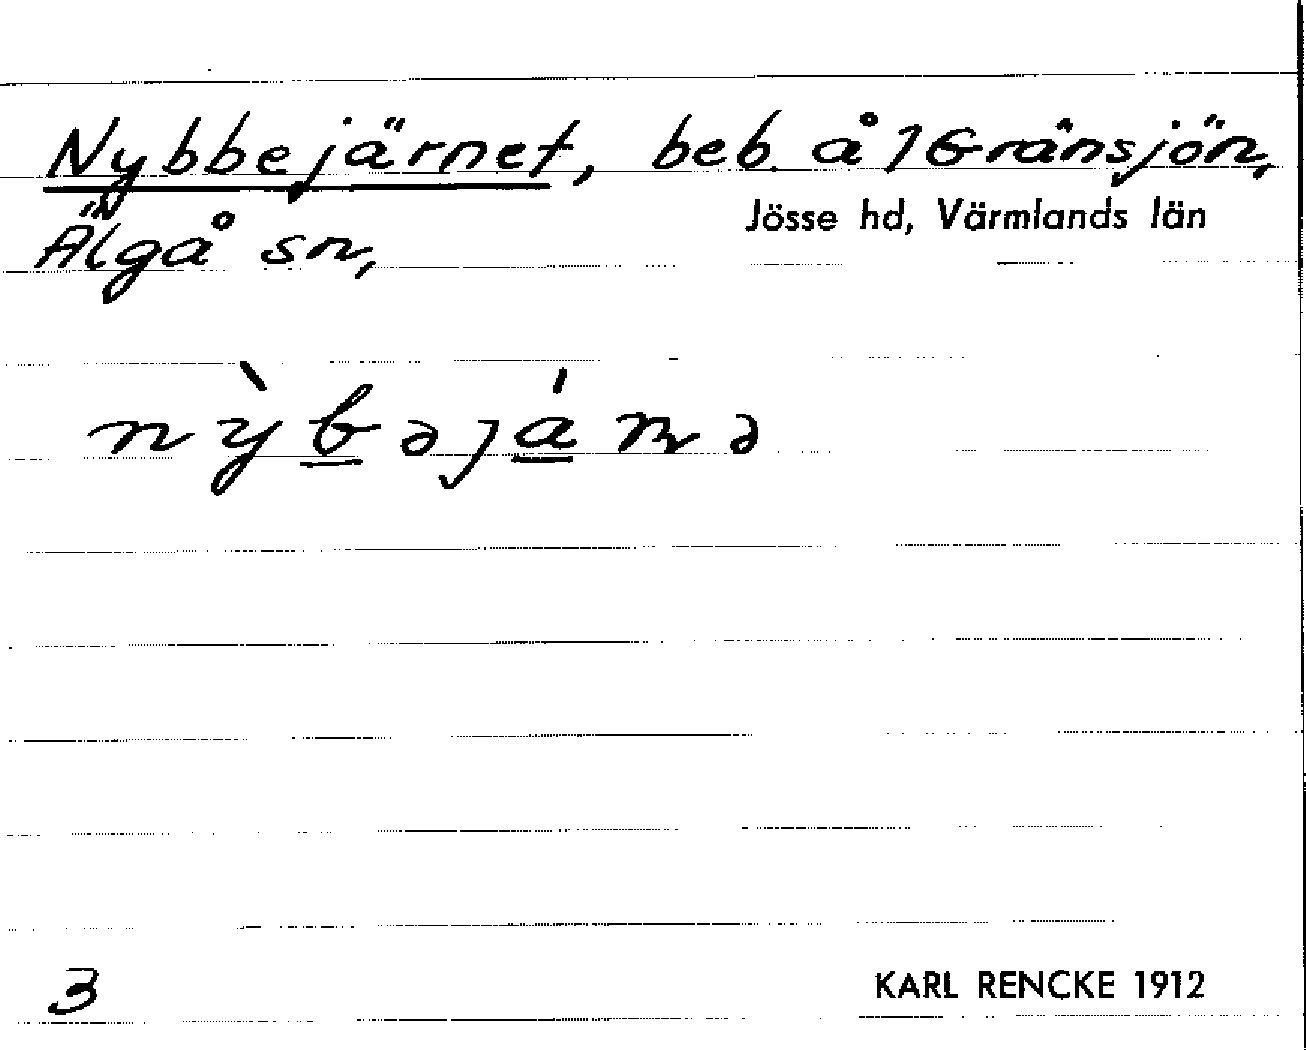 Nybbejärnet, beb. å 1 Gränsjön,
Älgå sn,
Jösse hd, Värmlands län
nỳbəjánə
3
KARL RENCKE 1912